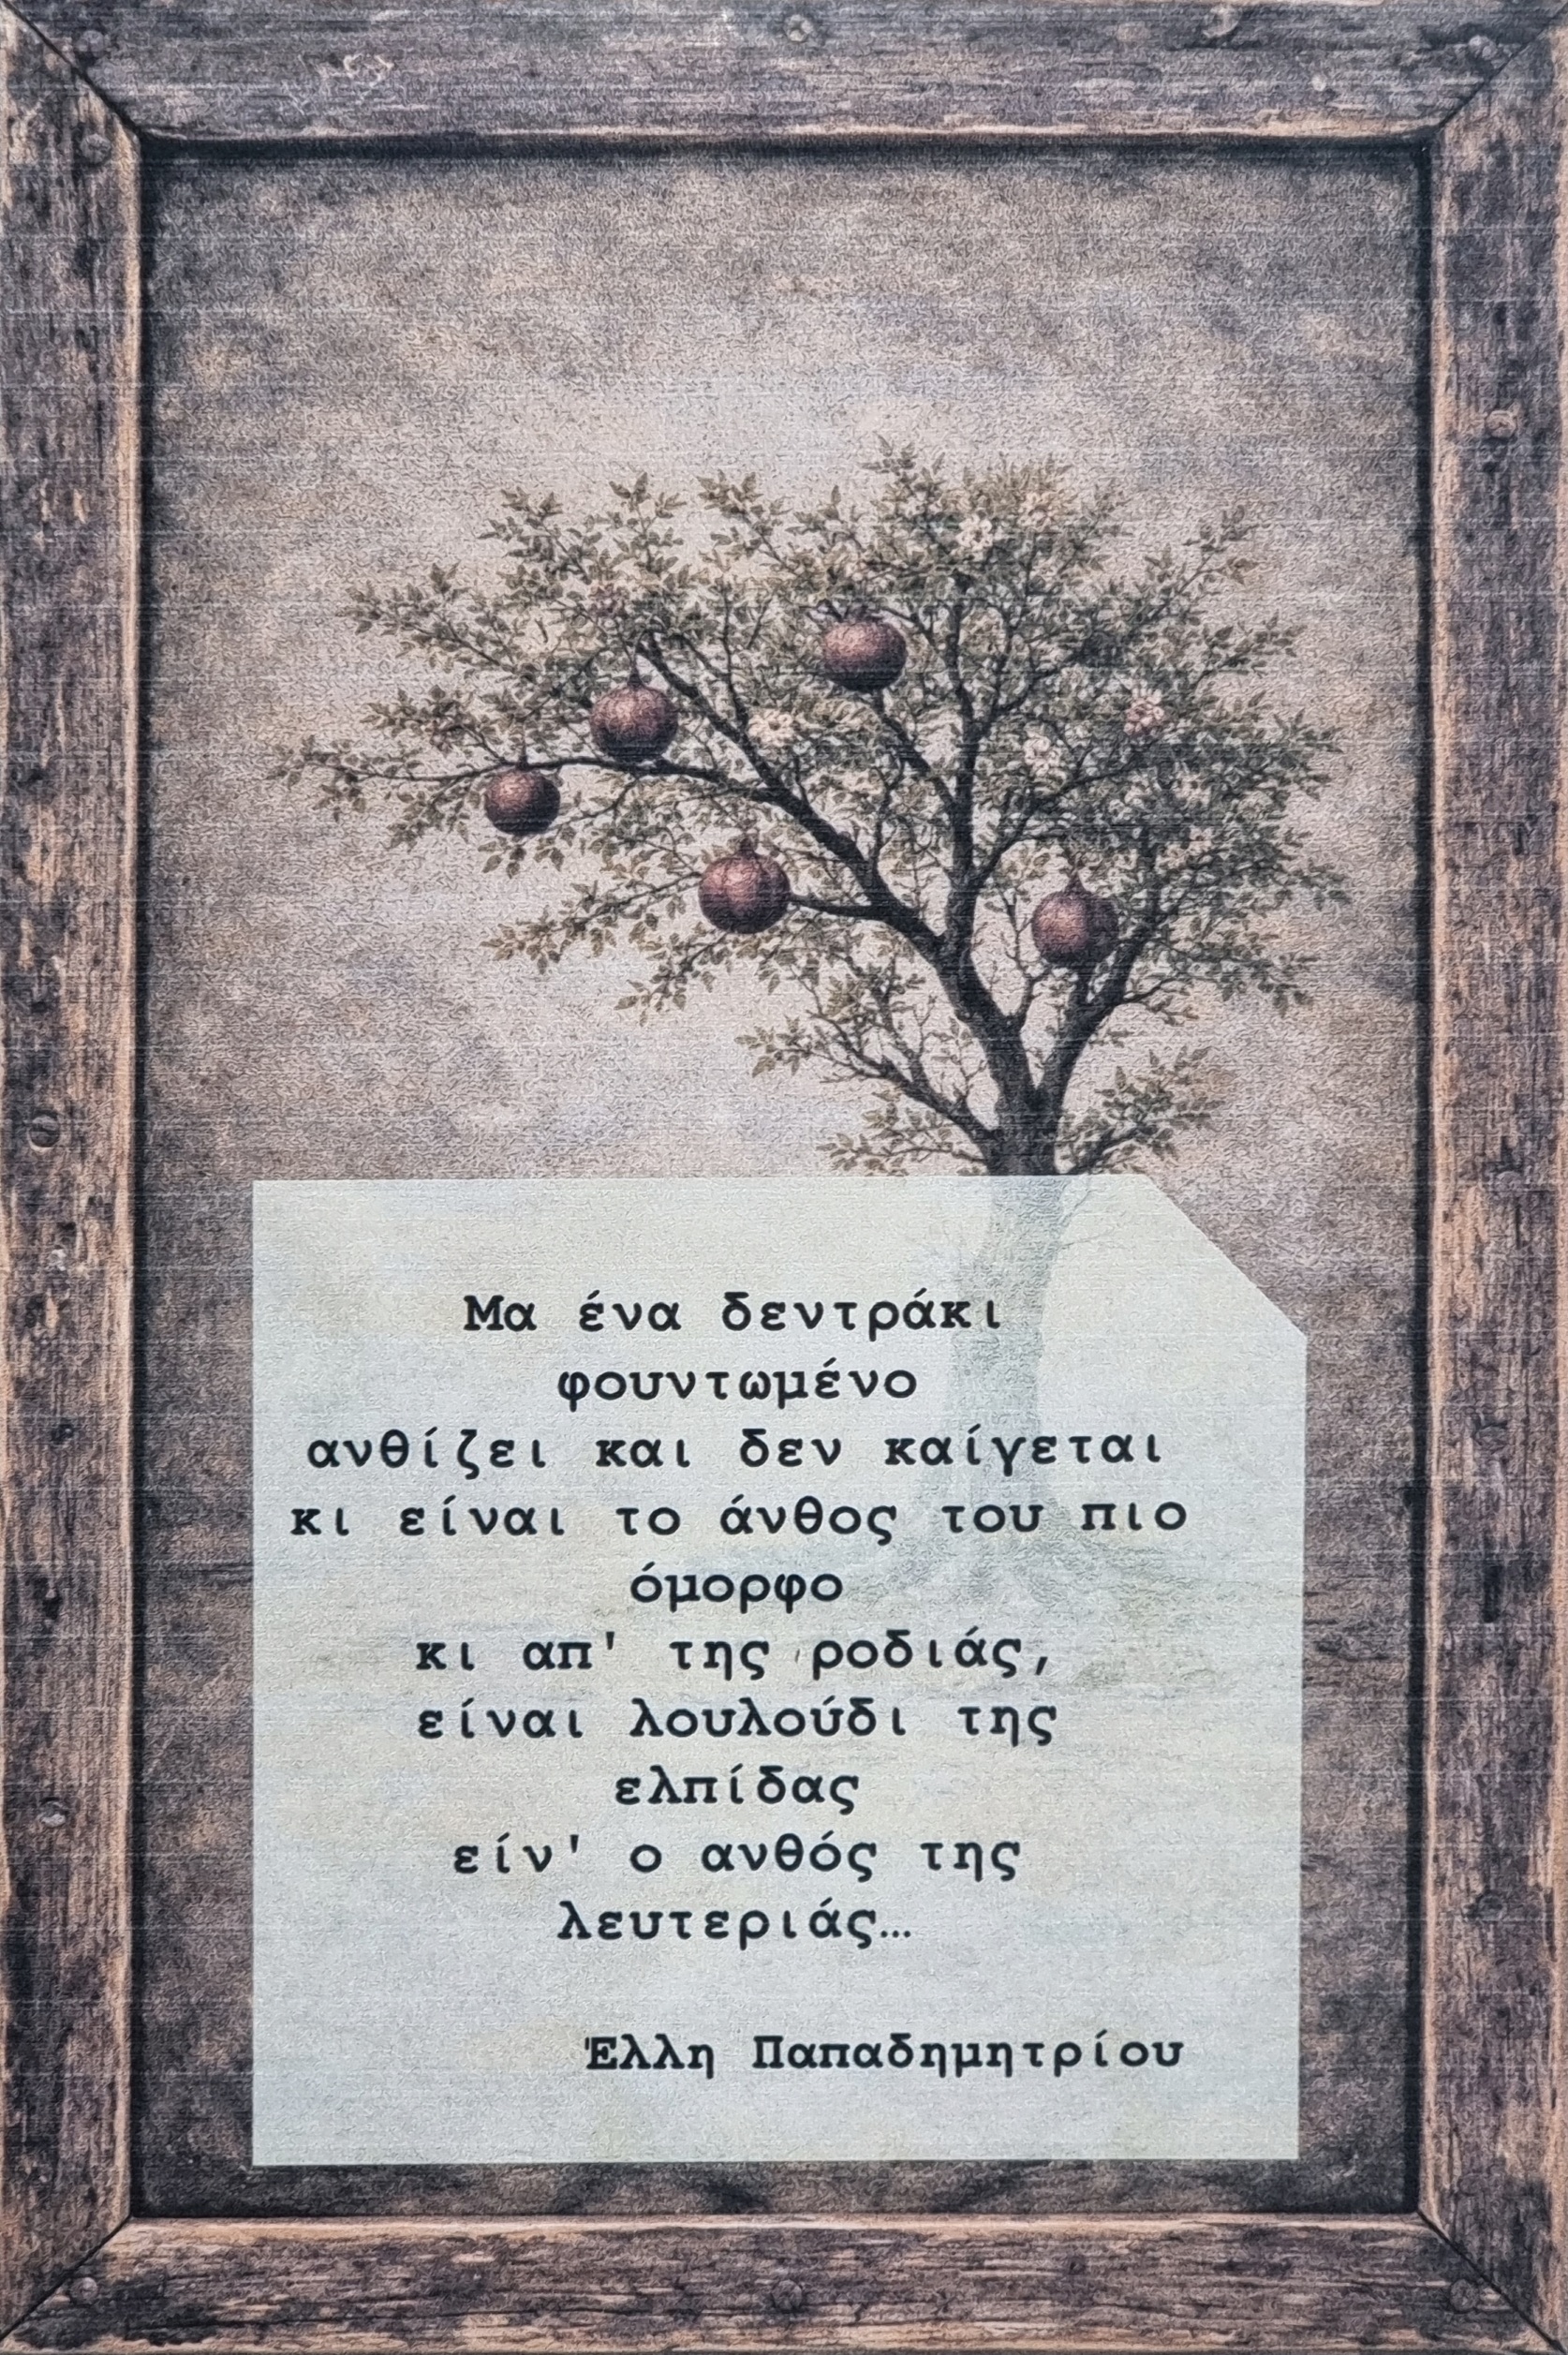 Μα ένα δεντράκι
φουντωμένο
ανθίζει και δεν καίγεται
κι είναι το άνθος του πιο
όμορφο
κι απ' της ροδιάς,
είναι λουλούδι της
ελπίδας
είν' ο ανθός της
λευτεριάς…
Έλλη Παπαδημητρίου